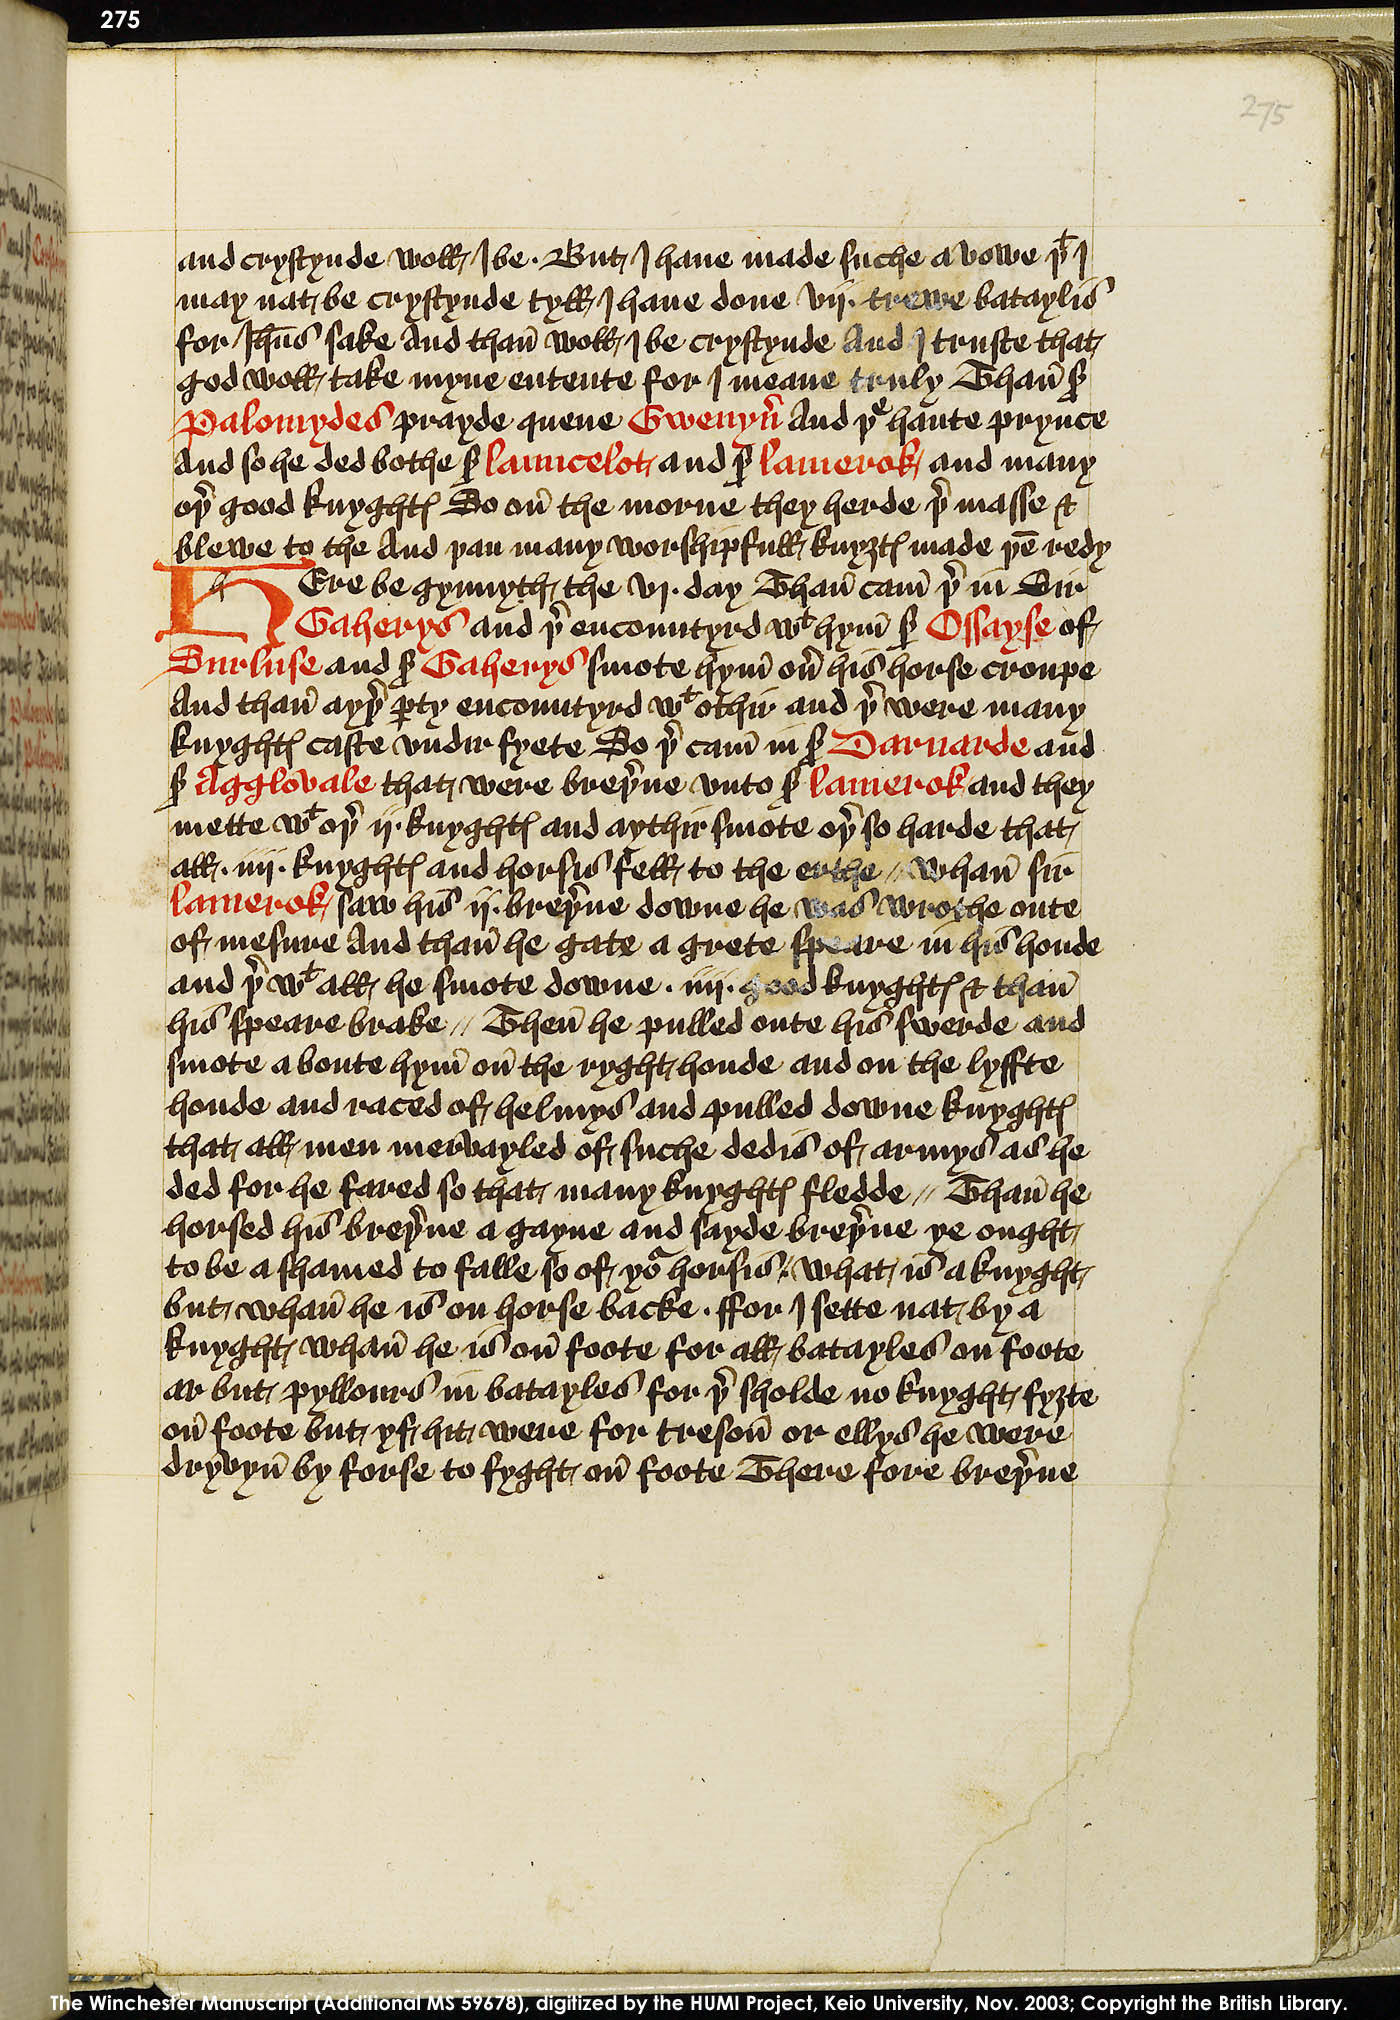 275
275
and crystynde woll I be . But I haue made suche a vowe þͭ I
may nat be crystynde tyll I haue done vij. trewe bataylis
for Jhūs sake And than̄ woll I be crystynde And I truste that
god woll take myne entente for I meane truly Than̄ sͥ
Palomydes prayde quene Gwenyu᷑ And þͤ haute prynce
And so he ded bothe sͥ launcelot and sͥ lamerok and many
oþ᷑ good knyghtꝭ So on̄ the morne they herde þ᷑ masse &
blewe to the And þan many worshipfull knyȝtꝭ made þē redy
HEre be gynnyth the vj. day Than̄ cam̄ þ᷑ in Sir
Gaherys and þ᷑ encountyrd wͭ hym̄ sͥ Ossayse of
Surluse and sͥ Gaherys smote hym̄ ou᷑ his horse croupe
And than̄ ayþ᷑ ꝑty encountyrd wͭ othir and þ᷑ were many
knyghtꝭ caste vndir fyete So þ᷑ cam̄ in sͥ Darnarde and
sͥ Agglovale that were breþ᷑ne vnto sͥ lamerok and they
mette wͭ oþ᷑ ij. knyghtꝭ and aythir smote oþ᷑ so harde that
all . iiij. knyghtꝭ and horsis fell to the erthe // whan̄ sir
lamerok saw his ij. breþ᷑ne downe he was wrothe oute
of mesure And than̄ he gate a grete speare in his honde
and þ᷑ wͭ all he smote downe . iiij. good knyghtꝭ & than̄
his speare brake // Then̄ he pulled oute his swerde and
smote a boute hym̄ on̄ the ryght honde and on the lyffte
honde and raced of helmys and pulled downe knyghtꝭ
that all men mervayled of suche dedis of armys as he
ded for he fared so that many knyghtꝭ fledde // Than̄ he
horsed his breþ᷑ne a gayne and sayde breþ᷑ne ye ought
to be a shamed to falle so of yoͬ horsis / what is a knyght
but whan̄ he is on horse backe . ffor I sette nat by a
knyght whan̄ he is on̄ foote for all batayles on foote
ar but pyllours in batayles for þ᷑ sholde no knyght fyȝte
on̄ foote but yf hit were for treson̄ or ellys he were
dryvyn̄ by forse to fyght on̄ foote There fore breþ᷑ne
The Winchester Manuscript (Additional MS 59678), digitized by the HUMI Project, Keio University, Nov. 2003; Copyright the British Library.